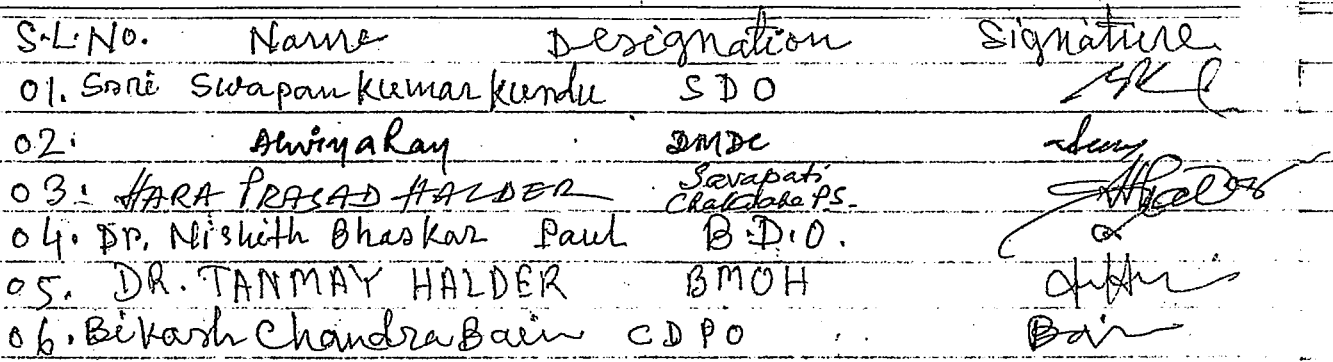 S.L.No. Name Designation Signature
01. Swapan Kumar Kundu SDO
02. DMDC
03. HARA PRASAD HALDER Savapati Chakdaha P.S.
04. Dr. Nishith Bhaskar Paul B.D.O.
05. DR. TANMAY HALDER BMOH
06. Bikash Chandra Bain CDPO Bain